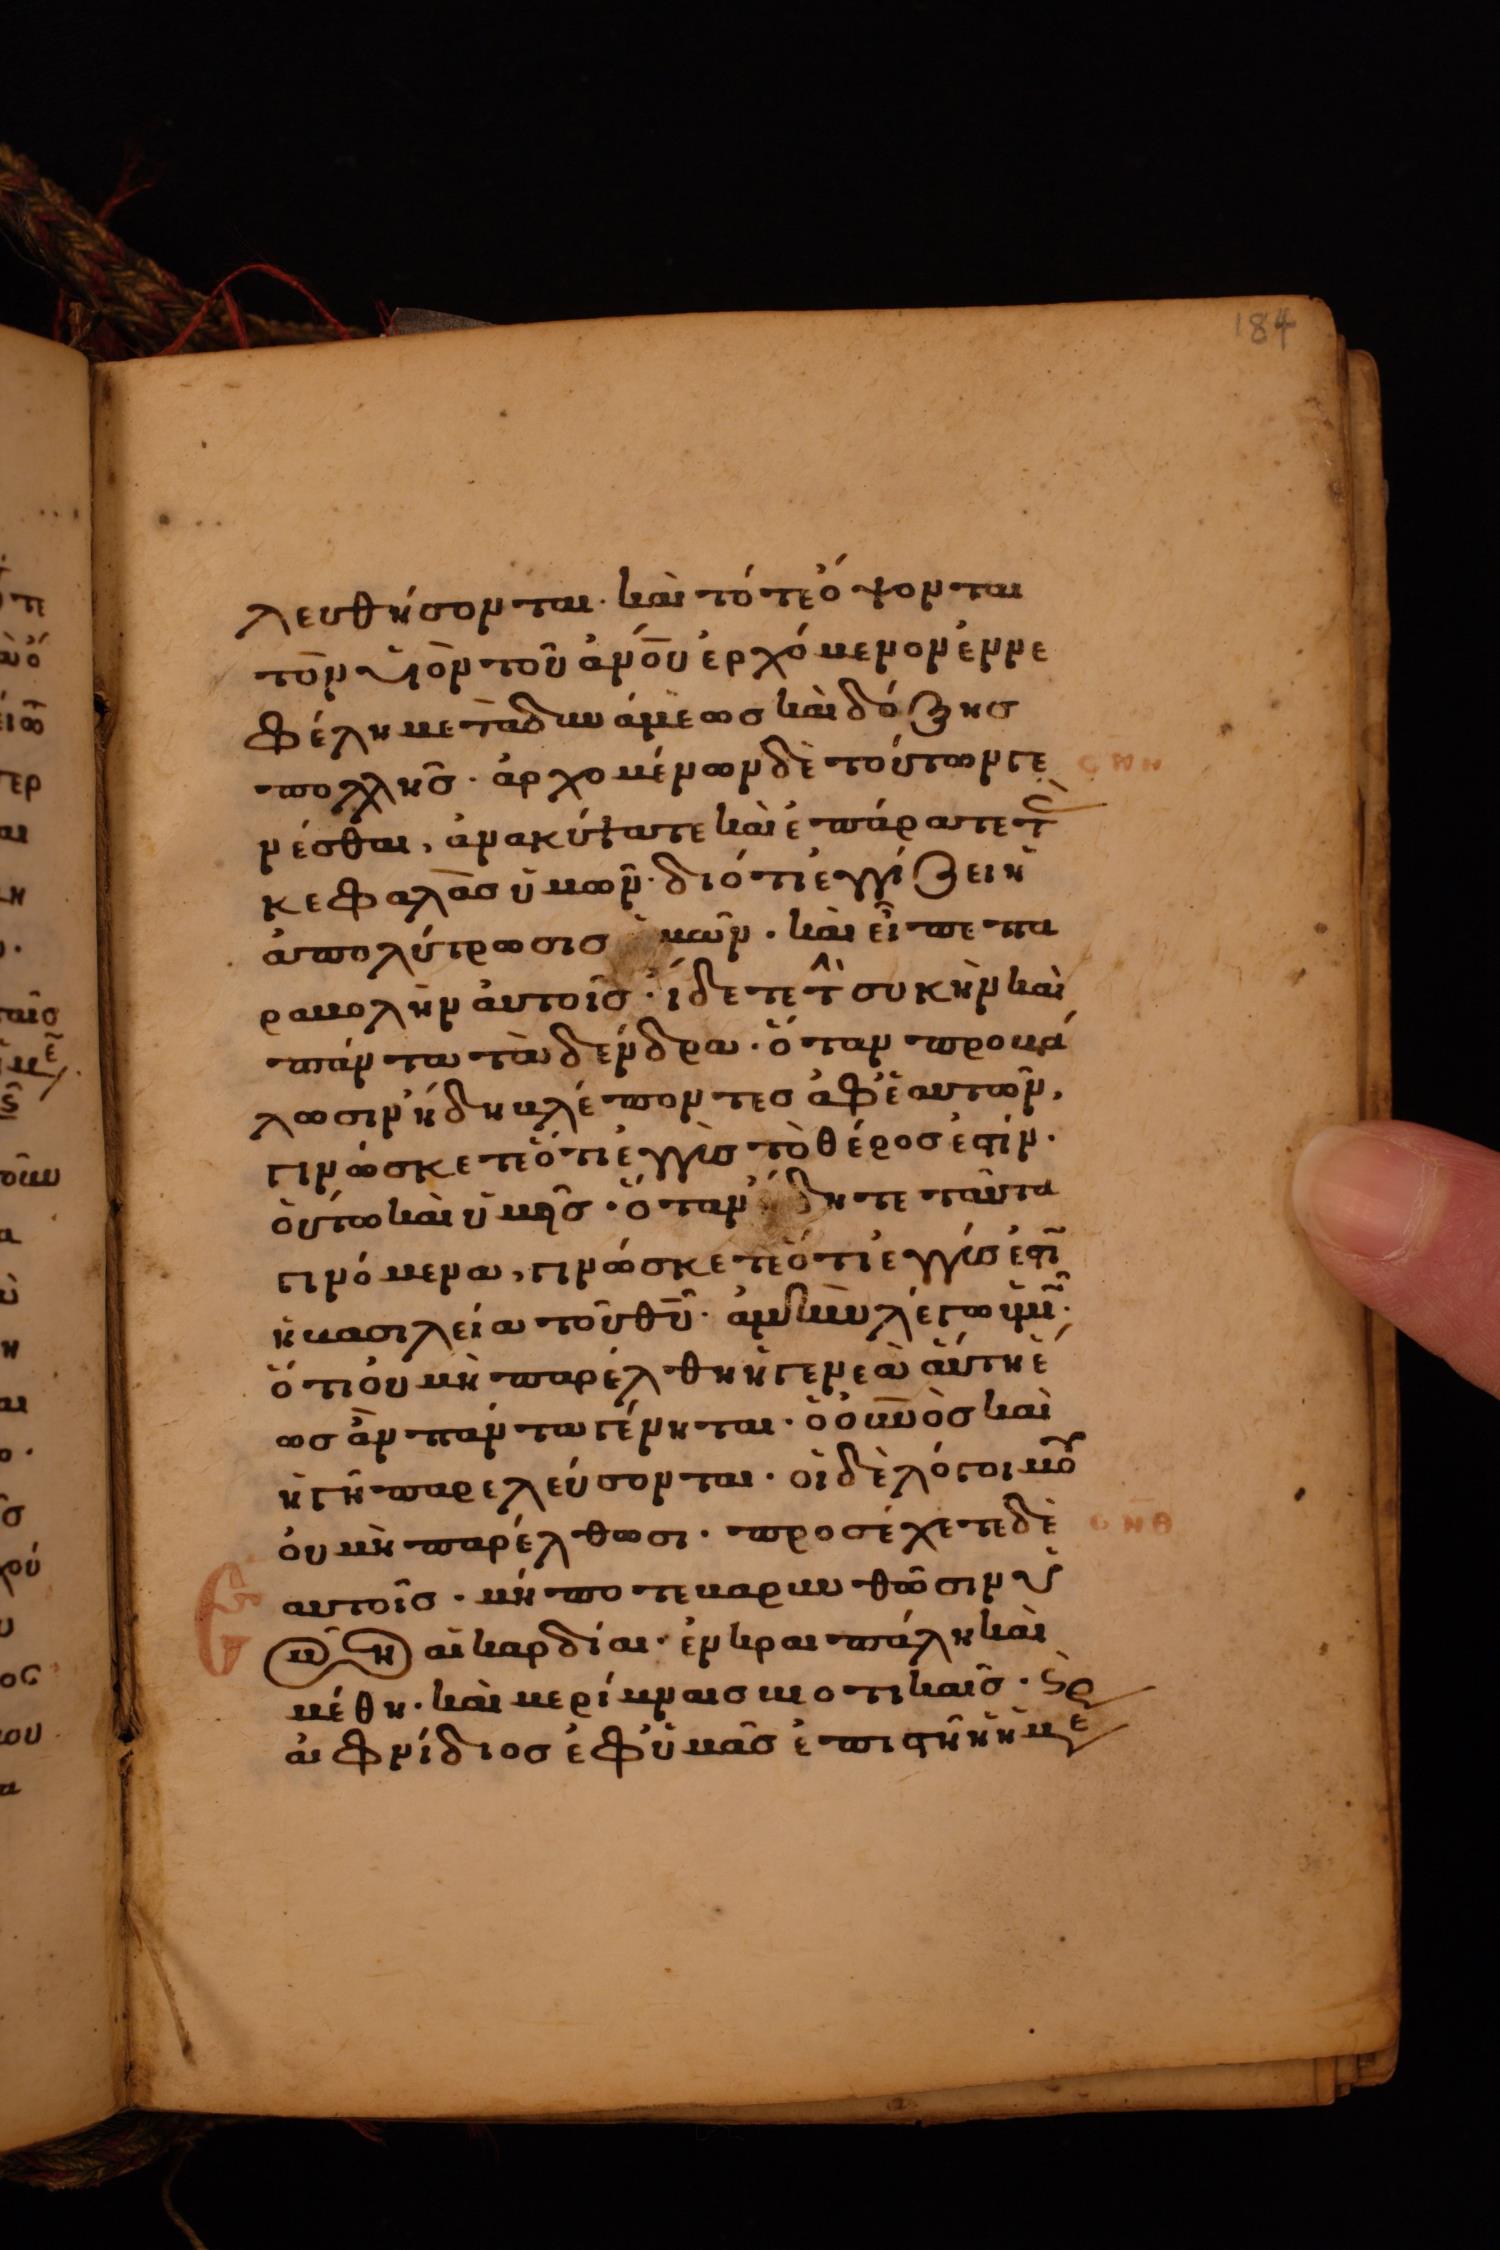 184
λευθήσονται· καὶ τότε ὄψονται
τὸν υἱὸν τοῦ ἀν̅ο̅υ̅ ἐρχόμενον ἐν νε
φέλη μετὰ δυνάμεως καὶ δόξης
πολλῆς· ἀρχομένων δὲ τούτων γε
νέσθαι, ἀνακύψατε καὶ ἐπάρατε τ(ὰς)
κεφαλὰς ὑμῶν· διότι ἐγγίζει ἡ
ἀπολύτρωσις ὑμῶν· καὶ εἶπε πα
ραβολὴν αὐτοῖς· ἴδετε τ(ὴν) συκὴν καὶ
πάντα τὰ δένδρα· ὅταν προβά
λωσιν ἤδη βλέποντες ἀφ' ἑαυτῶν,
γινώσκετε ὅτι ἐγγὺς τὸ θέρος ἐστίν·
οὕτω καὶ ὑμεῖς· ὅταν ἴδητε ταῦτα
γινόμενα, γινώσκετε ὅτι ἐγγύς ἐστι(ν)
ἡ βασιλεία τοῦ θ̅υ̅· ἀμὴν λέγω ὑμῖ(ν)·
ὅτι οὐ μὴ παρέλθη ἡ γενεὰ αὕτη ἕ
ως ἂν πάντα γένηται· ὁ ο̅υ̅ν̅ὸς καὶ
ἡ γῆ παρελεύσονται· οἱ δὲ λόγοι μου
οὐ μὴ παρέλθωσι· προσέχετε δὲ
αὐτοῖς· μήποτε βαρυνθῶσιν ὑ
μῶν αἱ καρδίαι· ἐν κραιπάλη καὶ
μέθη· καὶ μερίμναις βιοτικαῖς· (καὶ)
αἰφνίδιος ἐφ' ὑμᾶς ἐπιστῆ ἡ ἡμέ